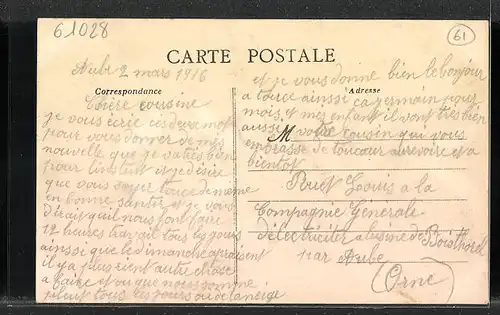 61028
61
CARTE POSTALE
Correspondance
Adresse
Aube 2 mars 1916
Chère cousine
je vous écrie ces deux mot
pour vous donner de mes
nouvelle que je vatres bien
pour linstant et je désire
que vous soyer touce de meme
en bonne santier et je vous
dirait quil nous font faire
12 heures travail tous les jours
ainssi que le dimanche apraisent
il y a plus rient autre chose
a faire et ou que nous somme
pleut tous les jours ou de la neige
et je vous donne bien le bonjour
a touce ainssi ca germain pour
mois, et mes enfant il vont tres bien
aussi votre cousin qui vous
embrasse de toucœur aurevoire et a
bientot
M
Ruet Louis a la
Compagnie Generale
délectriciter a lusine de Boisthorel
par Aube
(Orne)